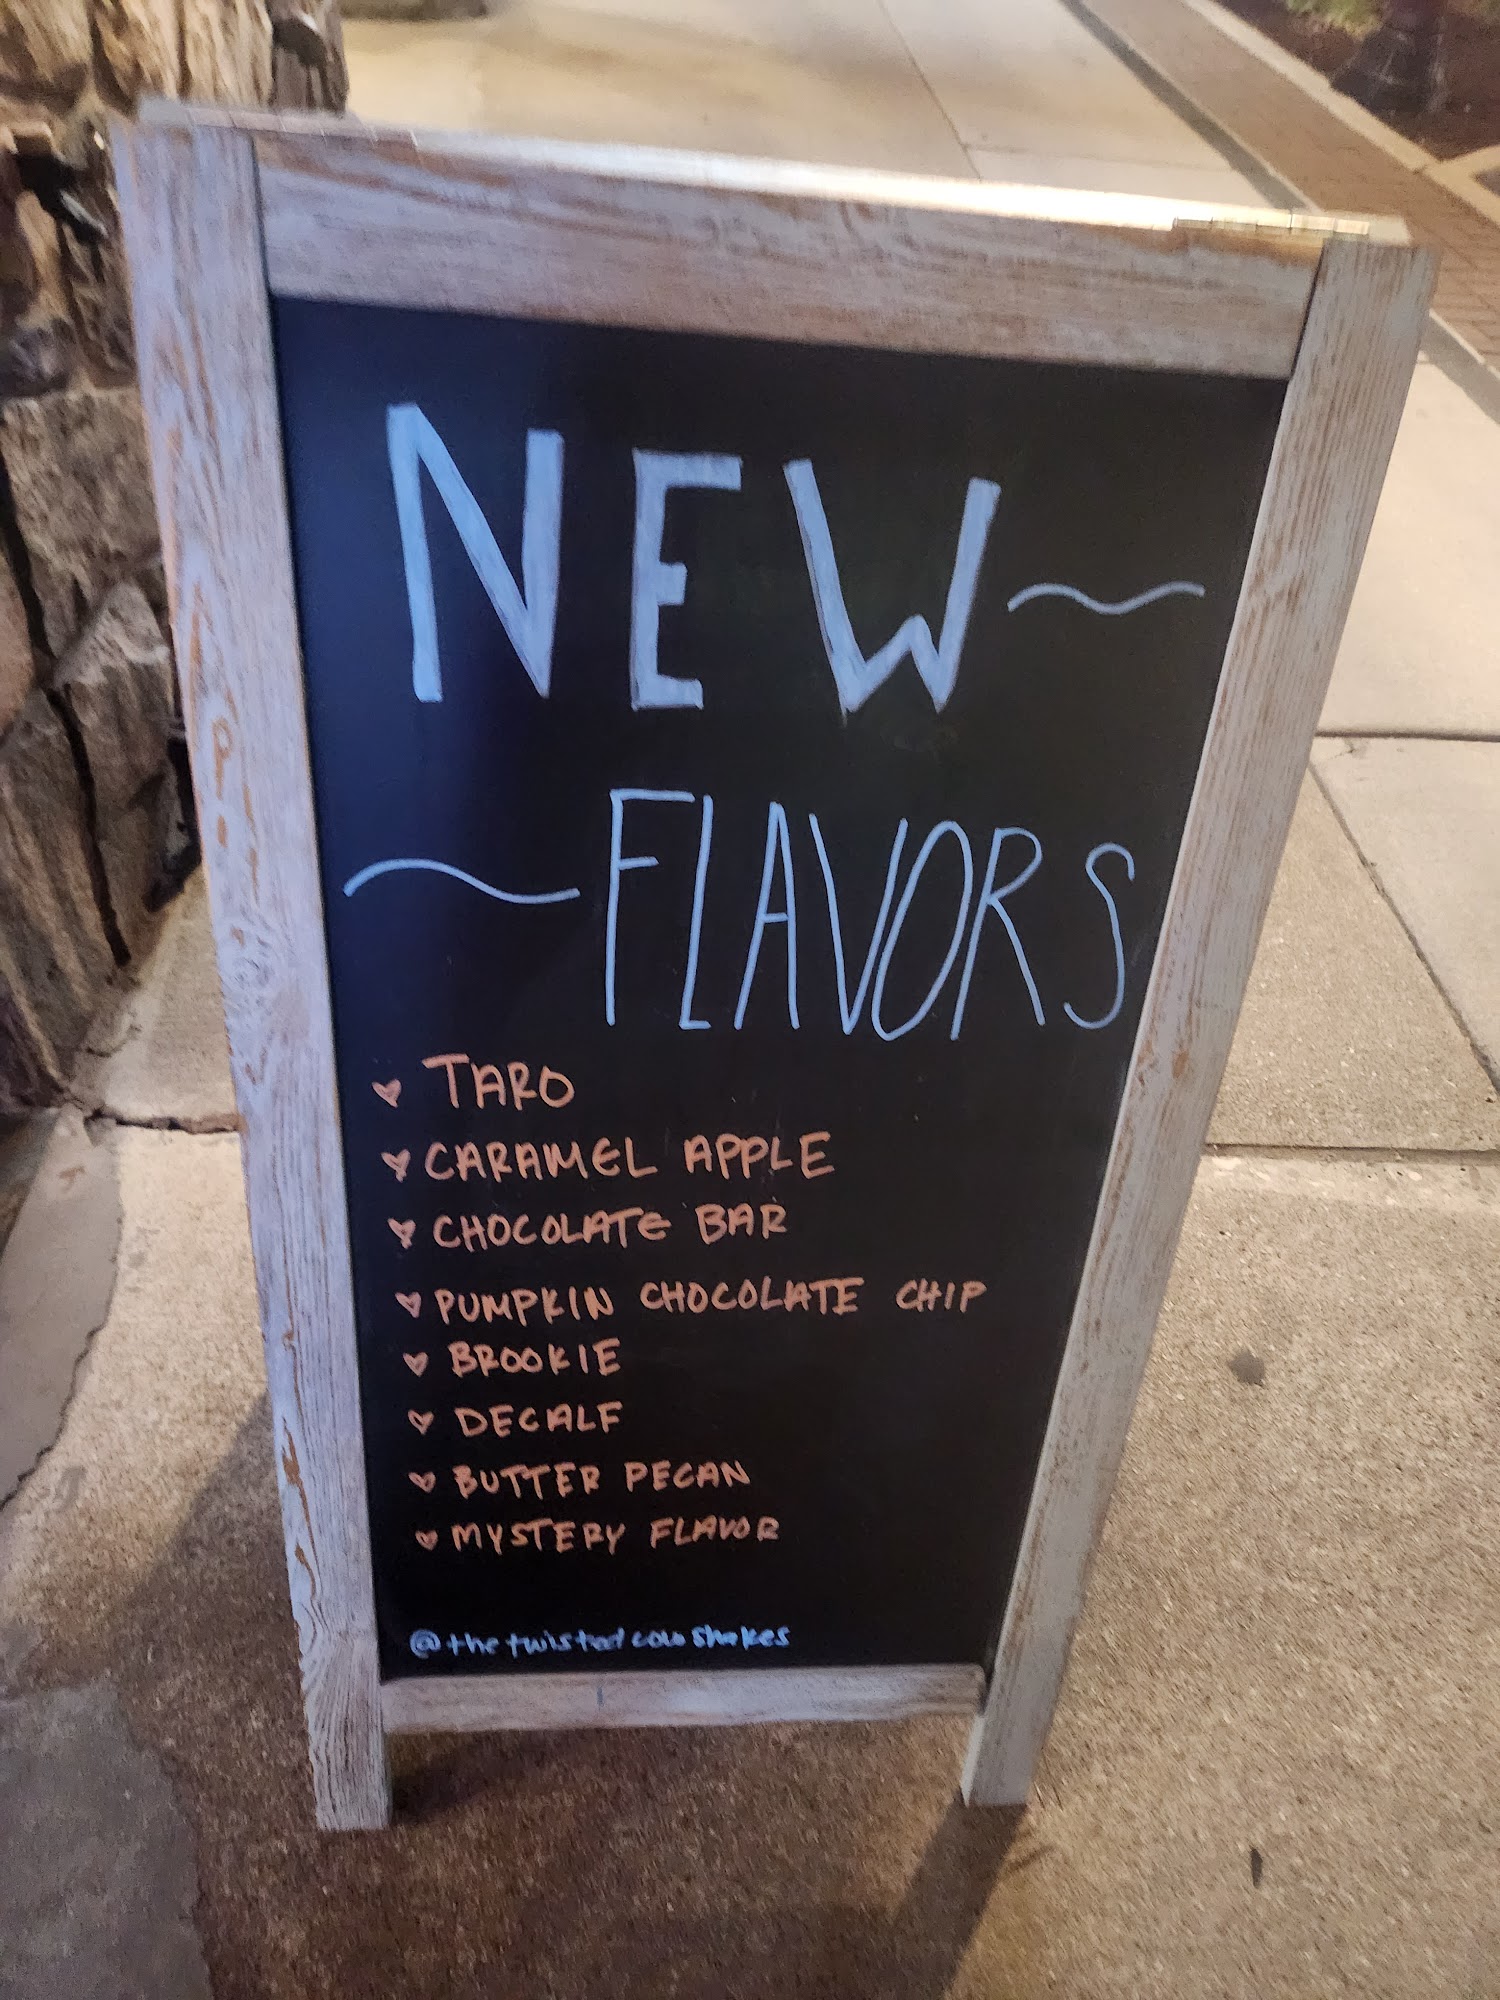 NEW
FLAVORS
TARO
CARAMEL APPLE
CHOCOLATE BAR
PUMPKIN CHOCOLATE CHIP
BROOKIE
DECALF
BUTTER PECAN
MYSTERY FLAVOR
@thetwistedcowshakes